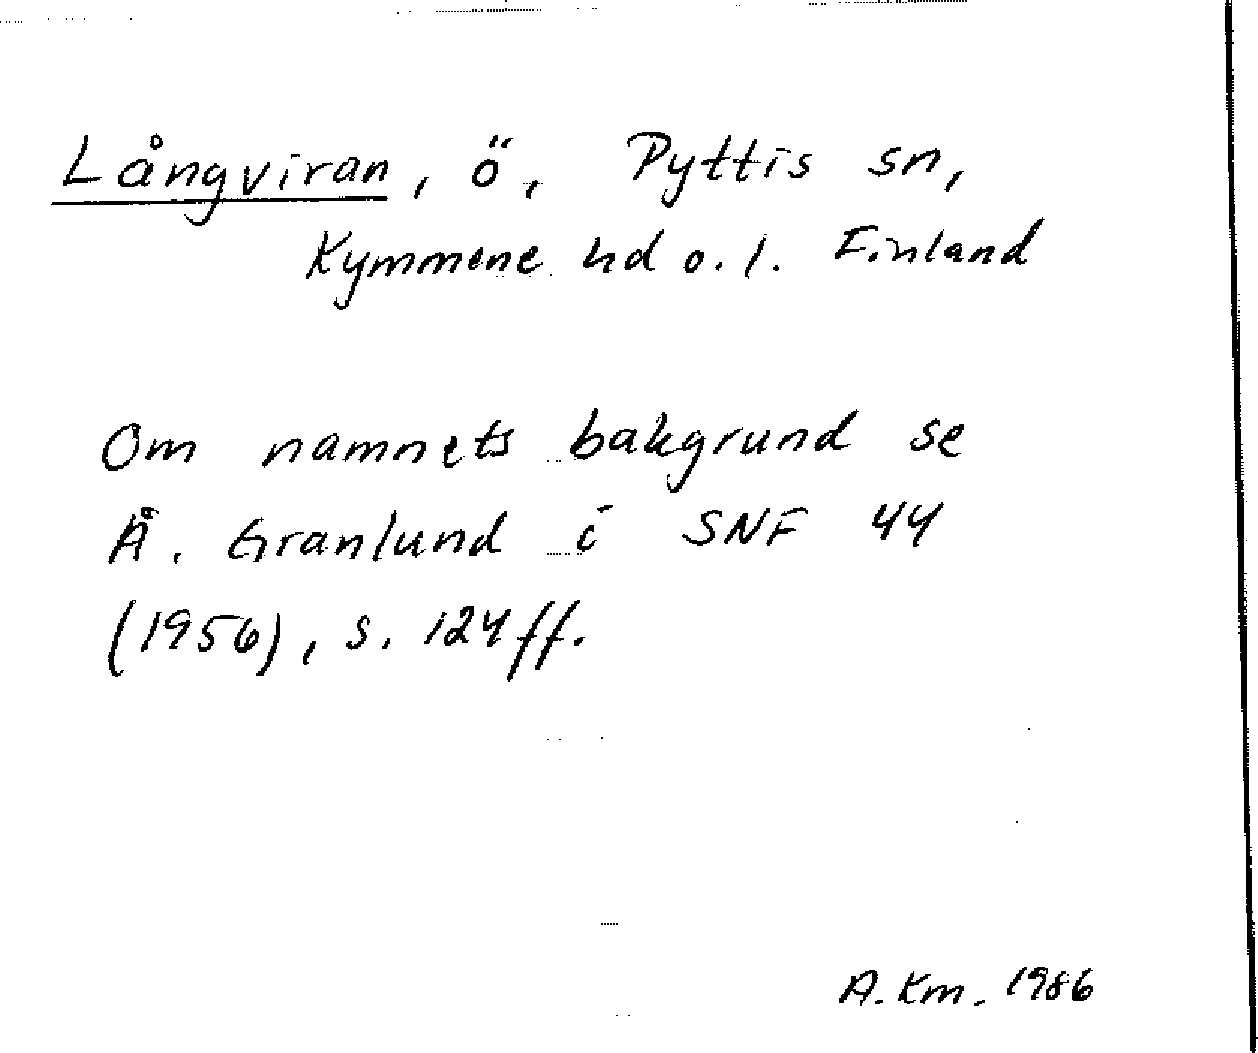 Långviran, ö, Pyttis sn,
Kymmene hd o. l. Finland
Om namnets bakgrund se
Å. Granlund i SNF 44
(1956), s. 124 ff.
A. Km. 1986